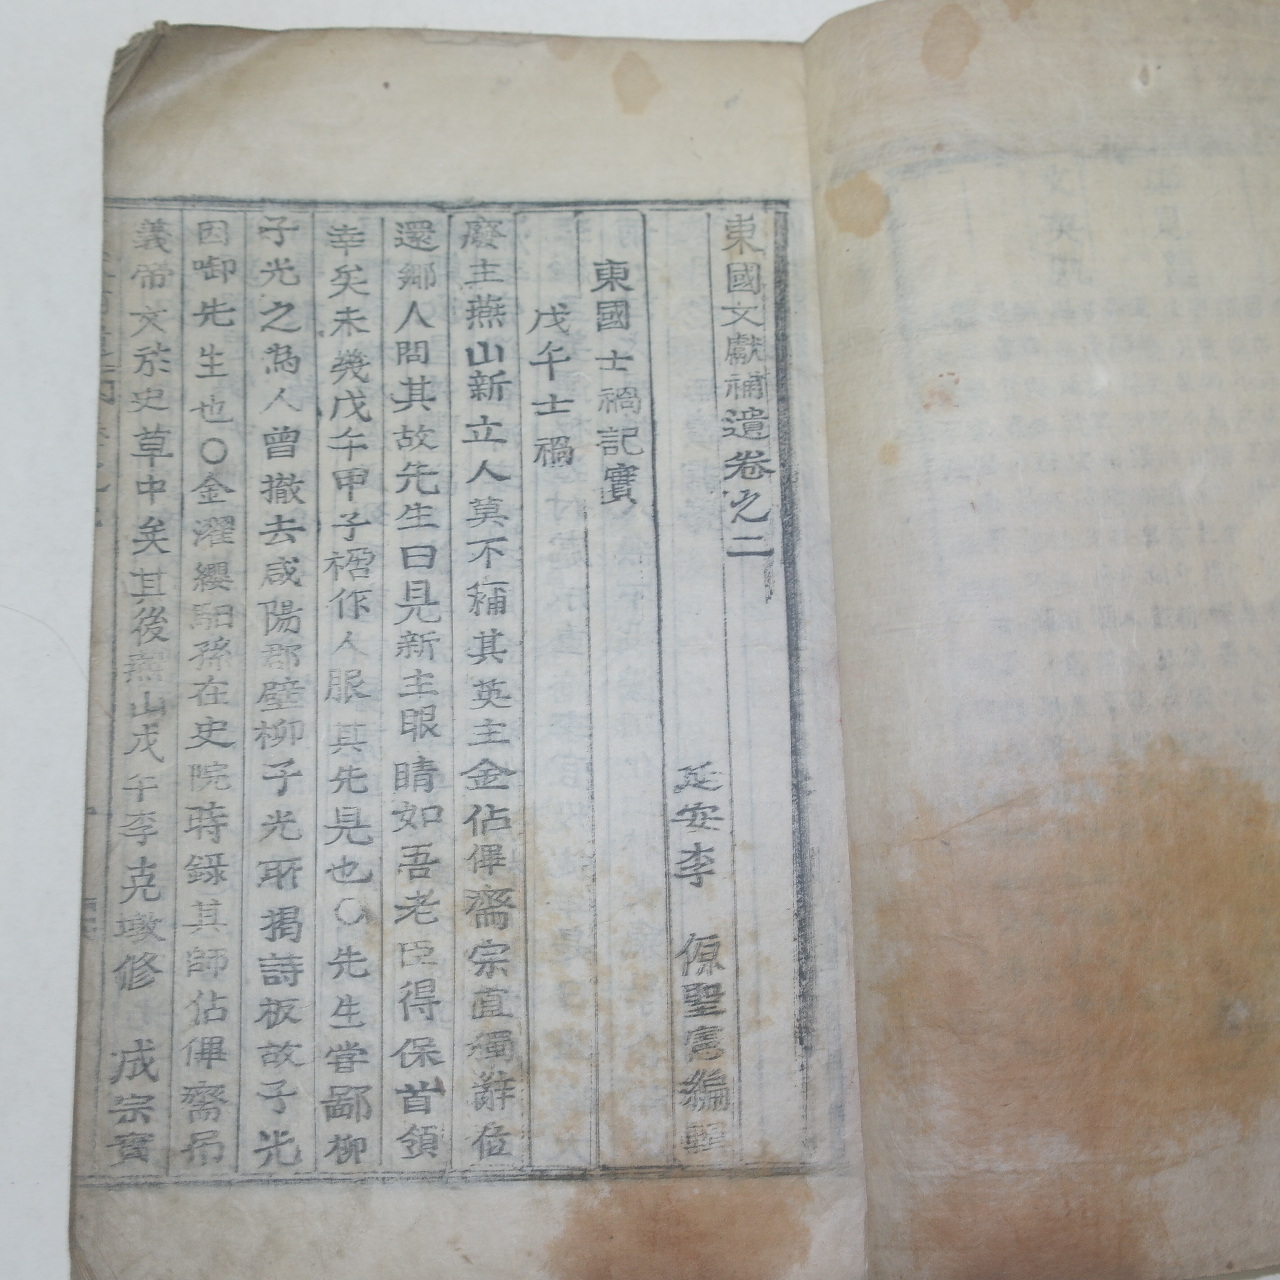 東國文獻補遺卷之二
延安李 㒞聖寯編輯
東國士禍記實
戊午士禍
廢主燕山新立人莫不稱其英主金佔俾齋宗直獨辭位
還鄉人問其故先生曰見新主眼睛如吾老臣得保首領
幸矣未幾戊午甲子禍作人服其先見也〇先生嘗鄙柳
子光之為人曾撤去咸陽郡壁柳子光所揭詩板故子光
因啣先生也〇金濯纓馹孫在史院時錄其師佔俾齋吊
義帝文於史草中矣其後燕山戊午李克墩修 成宗實